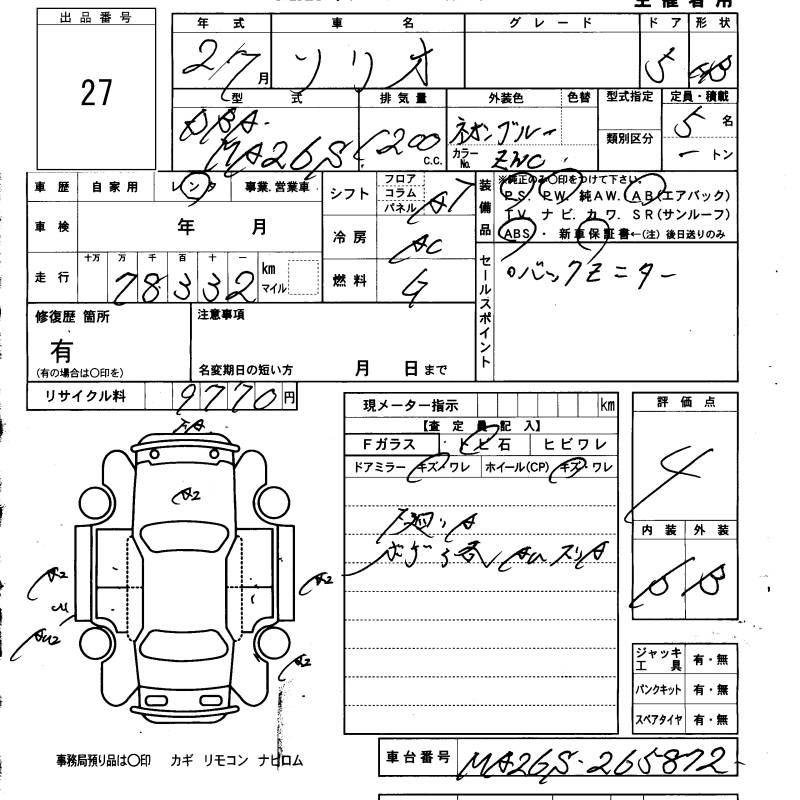 出品番号
27
年式 車名 グレード ドア 形状
27 月 ソリオ 5 HB
型式 排気量 外装色 色替 型式指定 定員・積載
DBA-
MA26S 1200 C.C. ネオンブルー 5 名
カラーNo. ZNC 類別区分 ー トン
車歴 自家用 レンタ 事業.営業車
車検 年 月
走行 十万 万 千 百 十 一
78332 km マイル
シフト フロア コラム パネル AT
冷房 AC
燃料 G
装備品 ※純正のみ〇印をつけて下さい。
P.S. P.W. 純A.W. A.B(エアバック)
T.V. ナビ. カワ. S R(サンルーフ)
ABS ・ 新車保証書←(注)後日送りのみ
セールスポイント
○バックモニター
修復歴 箇所
有
(有の場合は〇印を)
注意事項
名変期日の短い方 月 日まで
リサイクル料 9770 円
現メーター指示 km
【査定員記入】
Fガラス ・トビ石 ヒビワレ
ドアミラー キズ・ワレ ホイール(CP) キズ・ワレ
評価点
4
内装 外装
B B
A2
A2
A2
AU2
A2
ジャッキ 工具 有・無
パンクキット 有・無
スペアタイヤ 有・無
事務局預り品は〇印 カギ リモコン ナビロム
車台番号 MA26S-265872